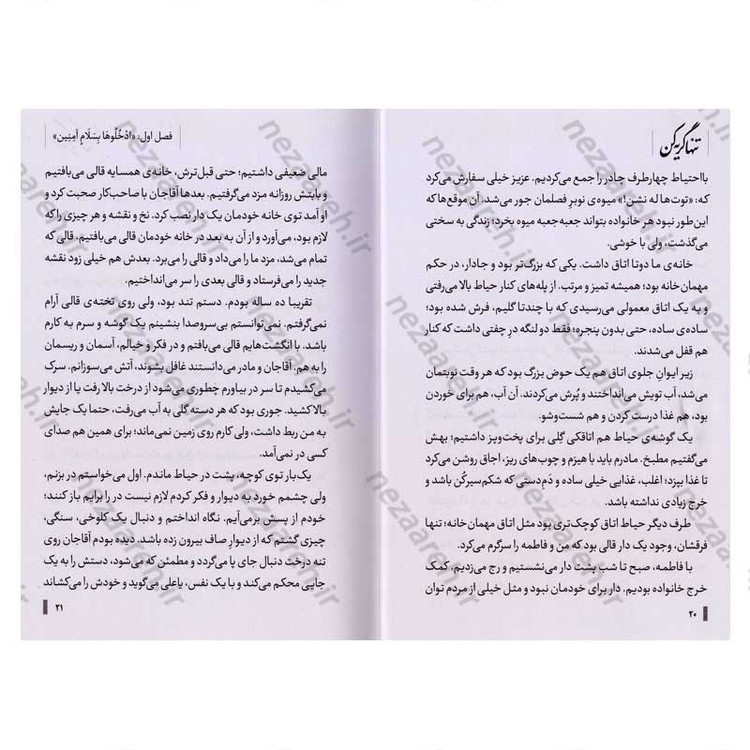 تنها گریه کن
با احتیاط چهارطرف چادر را جمع می‌کردیم. عزیز خیلی سفارش می‌کرد
که: «توت‌ها له نشن!» میوه‌ی نوبرِ فصلمان جور می‌شد. آن موقع‌ها که
این‌طور نبود هر خانواده بتواند جعبه‌جعبه میوه بخرد؛ زندگی به سختی
می‌گذشت، ولی با خوشی.
خانه‌ی ما دوتا اتاق داشت. یکی که بزرگ‌تر بود و جادار، در حکم
مهمان خانه بود؛ همیشه تمیز و مرتب. از پله‌های کنار حیاط بالا می‌رفتی
و به یک اتاق معمولی می‌رسیدی که با چندتا گلیم، فرش شده بود؛
ساده‌ی ساده، حتی بدون پنجره؛ فقط دو لنگه درِ چفتی داشت که کنار
هم قفل می‌شدند.
زیر ایوانِ جلوی اتاق هم یک حوض بزرگ بود که هر وقت نوبتمان
می‌شد، آب تویش می‌انداختند و پُرش می‌کردند. آن آب، هم برای خوردن
بود، هم غذا درست کردن و هم شست‌وشو.
یک گوشه‌ی حیاط هم اتاقکی گِلی برای پخت‌وپز داشتیم؛ بهش
می‌گفتیم مطبخ. مادرم باید با هیزم و چوب‌های ریز، اجاق روشن می‌کرد
تا غذا بپزد؛ اغلب، غذایی خیلی ساده و دَمِ‌دستی که شکم سیرکُن باشد و
خرج زیادی نداشته باشد.
طرف دیگر حیاط اتاق کوچک‌تری بود مثل اتاق مهمان خانه؛ تنها
فرقشان، وجود یک دار قالی بود که من و فاطمه را سرگرم می‌کرد.
با فاطمه، صبح تا شب پشت دار می‌نشستیم و رج می‌زدیم. کمک
خرج خانواده بودیم. دار برای خودمان نبود و مثل خیلی از مردم توان
۲۰
فصل اول: «ادْخُلُوهَا بِسَلَامٍ آمِنِین»
مالی ضعیفی داشتیم؛ حتی قبل‌ترش، خانه‌ی همسایه قالی می‌بافتیم
و بابتش روزانه مزد می‌گرفتیم. بعدها آقاجان با صاحب‌کار صحبت کرد و
او آمد توی خانه خودمان یک دار نصب کرد. نخ و نقشه و هر چیزی را که
لازم بود، می‌آورد و از آن به بعد در خانه خودمان قالی می‌بافتیم. قالی که
تمام می‌شد، مزد ما را می‌داد و قالی را می‌برد. بعدش هم خیلی زود نقشه
جدید را می‌فرستاد و قالی بعدی را سر می‌انداختیم.
تقریبا ده ساله بودم. دستم تند بود، ولی روی تخته‌ی قالی آرام
نمی‌گرفتم. نمی‌توانستم بی‌سروصدا بنشینم یک گوشه و سرم به کارم
باشد. با انگشت‌هایم قالی می‌بافتم و در فکر و خیالم، آسمان و ریسمان
را به هم. آقاجان و مادر می‌دانستند غافل بشوند، آتش می‌سوزانم. سرک
می‌کشیدم تا سر در بیاورم چطوری می‌شود از درخت بالا رفت یا از دیوار
بالا کشید. جوری بود که هر دسته گلی به آب می‌رفت، حتما یک جایش
به من ربط داشت، ولی کارم روی زمین نمی‌ماند؛ برای همین هم صدای
کسی در نمی‌آمد.
یک‌بار توی کوچه، پشت در حیاط ماندم. اول می‌خواستم در بزنم،
ولی چشمم خورد به دیوار و فکر کردم لازم نیست در را برایم باز کنند؛
خودم از پسش برمی‌آیم. نگاه انداختم و دنبال یک کلوخی، سنگی،
چیزی گشتم که از دیوار صاف بیرون زده باشد. دیده بودم آقاجان روی
تنه درخت دنبال جای پا می‌گردد و مطمئن که می‌شود، دستش را به یک
جایی محکم می‌کند و با یک نفس، یاعلی می‌گوید و خودش را می‌کشاند
۲۱
nezaareh.ir